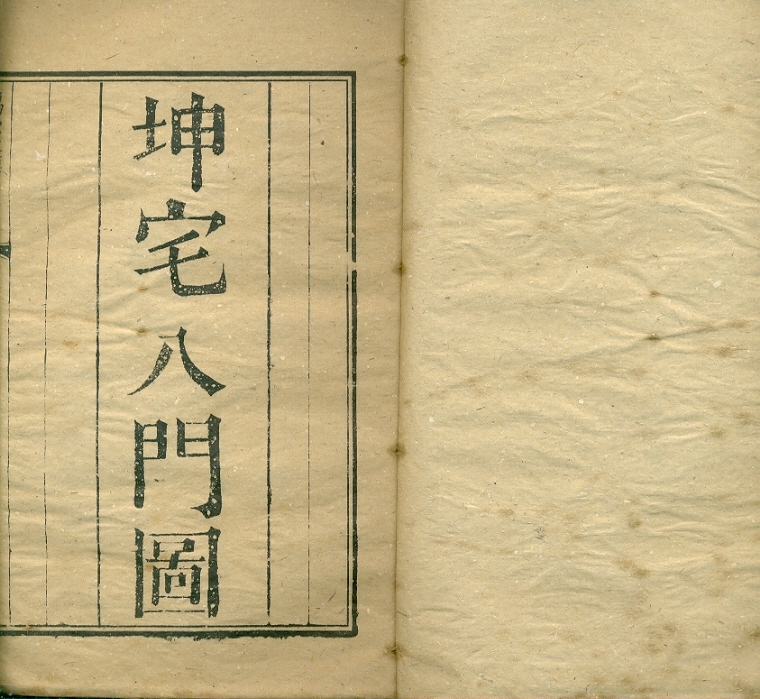 坤宅八門圖